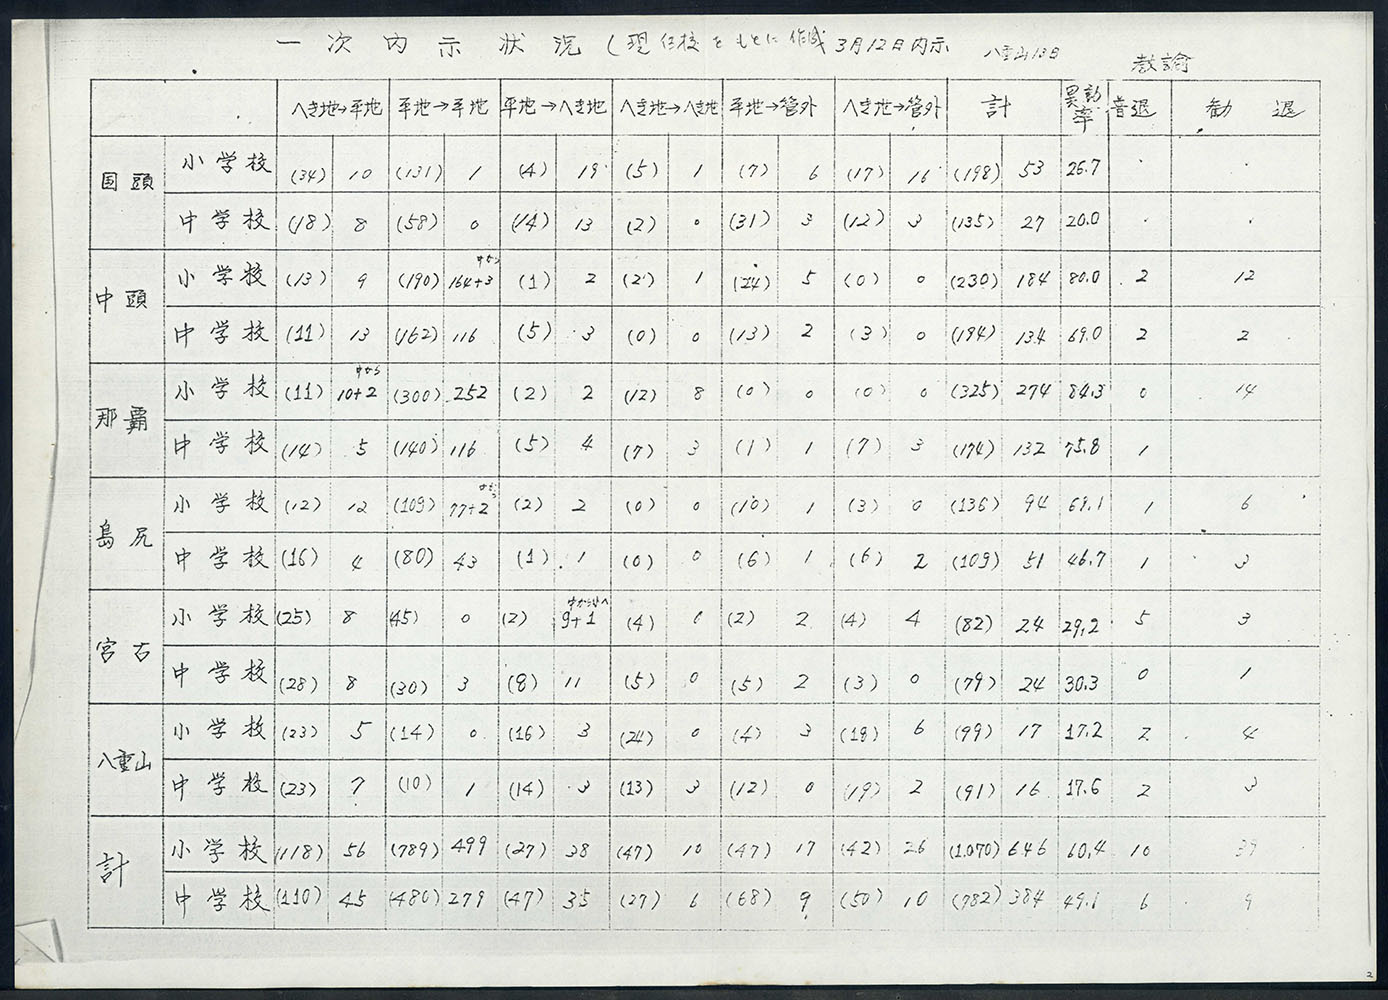 一次内示状況 (現任校をもとに作成 3月12日内示 八重山13日 教諭
へき地→平地 平地→平地 平地→へき地 へき地→へき地 平地→管外 へき地→管外 計 異動率 普退 勧退
国頭 小学校 (34) 10 (131) 1 (4) 19 (5) 1 (7) 6 (17) 16 (198) 53 26.7
中学校 (18) 8 (58) 0 (14) 13 (2) 0 (31) 3 (12) 3 (135) 27 20.0
中頭 小学校 (13) 9 (190) 164+3 (1) 2 (2) 1 (24) 5 (0) 0 (230) 184 80.0 2 12
中学校 (11) 13 (162) 116 (5) 3 (0) 0 (13) 2 (3) 0 (194) 134 69.0 2 2
那覇 小学校 (11) 中から 10+2 (300) 252 (2) 2 (12) 8 (0) 0 (0) 0 (325) 274 84.3 0 14
中学校 (14) 5 (140) 116 (5) 4 (7) 3 (1) 1 (7) 3 (174) 132 75.8 1
島尻 小学校 (12) 12 (109) 77+2 (2) 2 (0) 0 (10) 1 (3) 0 (136) 94 69.1 1 6
中学校 (16) 4 (80) 43 (1) 1 (0) 0 (6) 1 (6) 2 (109) 51 46.7 1 3
宮古 小学校 (25) 8 (45) 0 (2) 中から小へ 9+1 (4) 0 (2) 2 (4) 4 (82) 24 29.2 5 3
中学校 (28) 8 (30) 3 (8) 11 (5) 0 (5) 2 (3) 0 (79) 24 30.3 0 1
八重山 小学校 (23) 5 (14) 0 (16) 3 (24) 0 (4) 3 (18) 6 (99) 17 17.2 2 4
中学校 (23) 7 (10) 1 (14) 3 (13) 3 (12) 0 (19) 2 (91) 16 17.6 2 3
計 小学校 (118) 56 (789) 499 (27) 38 (47) 10 (47) 17 (42) 26 (1.070) 646 60.4 10 39
中学校 (110) 45 (480) 279 (47) 35 (27) 6 (68) 9 (50) 10 (782) 384 49.1 6 9
2